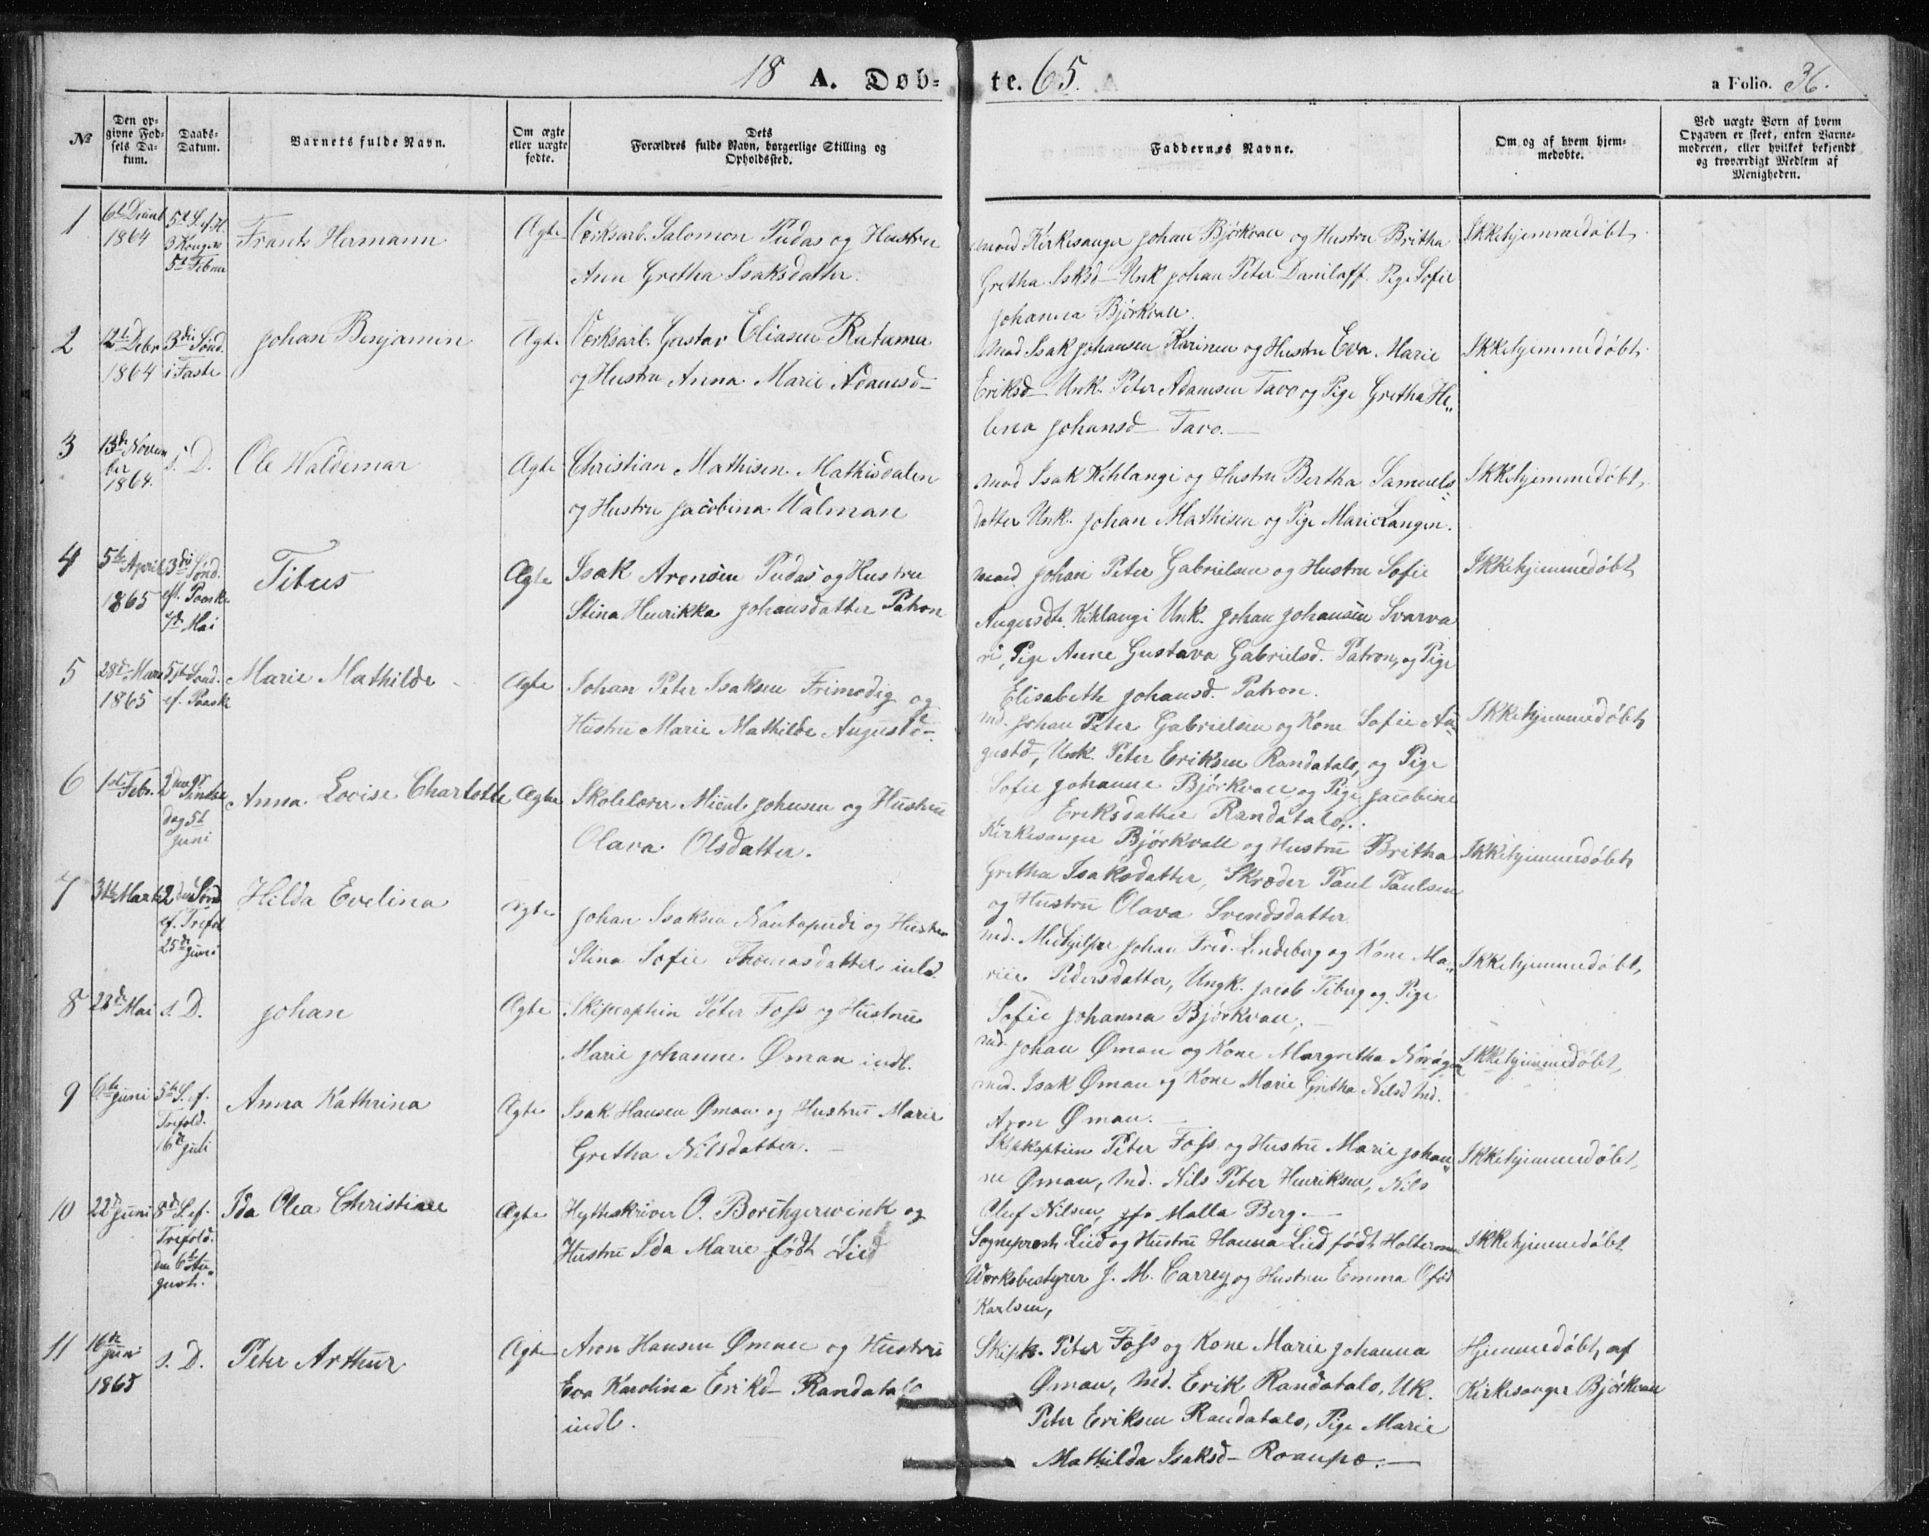 18 A. Døb-te. 65.
a Folio. 36.
№
Den op-
givne Fød-
sels Da-
tum.
Daabs-
Datum.
Barnets fulde Navn.
Om ægte
eller uægte
fødte.
Dets
Forældres fulde Navn, borgerlige Stilling og
Opholdssted.
Faddernes Navne.
Om og af hvem hjem-
medøbte.
Ved uægte Børn af hvem
Opgaven er skeet, enten Barne-
moderen, eller hvilket bekjendt
og troværdigt Medlem af
Menigheden.
1
1864
Frants Hermann
Ægte
Værksarb. Salomon Pudas og Hustru
Ann Gretha Isaksdatter.
Kirkesanger Johan Björkvall og Hustru Britha
Gretha Isksd- Unk Johan Peter Daniloff. Pige Sofie
Johanna Björkvall.
Ikkehjemmedøbt.
2
12te Debr
1864
3die Sönd.
i Faste
Johan Benjamin
Ægte
Værksarb. Gustav Eliasen Rutumu
og Hustru Anna Marie Adamsd-
Isak Johansen Karinen og Hustru Eva Marie
Eriksd- Unk. Peter Adamsen Tavo og Pige Gretha He„
lena Johansd- Tavo.-
Ikkehjemmedøbt.
3
13de Novem
ber
1864.
s. D.
Ole Waldemar
Ægte
Christian Mathisen Mathisdalen
og Hustru Jacobina Walman
Isak Kihlangi og Hustru Bertha Samuels
datter Unk. Johan Mathisen og Pige Marie Langen.
Ikkehjemmedøbt.
4
5te April
1865
3die Sønd.
ef. Paaske
7de Mai
Titus
Ægte
Isak Aronsen Pudas og Hustru
Stina Henrikka Johansdatter Patron
Johan Peter Gabrielsen og Hustru Sofie
Kihlangi Unk. Johan Johansen Svarva
ri, Pige Anne Gustava Gabrielsd. Patron, og Pige
Elisabeth Johansd. Patron.
Ikkehjemmedøbt
5
28de Marts
1865
5te Sönd.
ef. Paaske
Marie Mathilde
Ægte
Johan Peter Isaksen Frimodig og
Hustru Marie Mathilde Augustd-
Johan Peter Gabrielsen og Kone Sofie Au
gustd, Unk. Peter Eriksen Randatalo, og Pige
Sofie Johanne Björkvall og Pige Jacobine
Eriksdatter Randatalo.
Ikkehjemmedøbt
6
1ste Febr.
2den Pindse
dag 5te
Juni
Anna Lovise Charlotte
Ægte
Skolelærer Johnsen og Hustru
Olava Olsdatter.
Kirkesanger Björkvall og Hustru Britha
Gretha Isaksdatter, Skræder Paul Paulsen
og Hustru Olava Svendsdatter
Ikkehjemmedøbt
7
31te Marts
2den Sönd
ef. Trefol
25de Juni
Hilda Evelina
Ægte
Johan Isaksen Nautapudi og Hustru
Stina Sofie Thomasdatter indl
Johan Fred. Lindeberg og Kone Ma„
rie Pedersdatter, Ungk. Jacob Fiberg og Pige
Sofie Johanna Björkvall,-
Ikkehjemmedøbt,
8
Mai
s. D.
Johan
Ægte
Skipcaptein Peter Foss og Hustru
Marie Johanne Øman indl.
Johan Øman og Kone Margretha
Isak Øman og Kone Marie Gretha Nilsd Ind.
Aron Øman.-
Ikkehjemmedøbt,
9
6te Juni
5te S. ef.
Trefold.
16de Juli
Anna Kathrina
Ægte
Isak Hansen Øman og Hustru Marie
Gretha Nilsdatter.-
Skipkaptein Peter Foss og Hustru Marie Johan
ne Øman, Ind. Nils Peter Henriksen, Nils
Oluf Nilsen, Malla Berg.-
Ikkehjemmedøbt,
10
22de Juni
8de S. ef.
Trefold.
den 6te Au„
gust.
Ida Olea Christiane
Ægte
Hytteskriver O. Borchgerwink og
Hustru Ida Marie født Lied
Sogneprest Lied og Hustru Hanna Lied født Holterman
Værksbestyrer J. M. Carrey og Hustru Emma
Karlsen,
Ikkehjemmedøbt
11
16de
Juni
1865
s. D.
Peter Arthur
Ægte
Aron Hansen Ømann og Hustru
Eva Karolina Eriksd- Randatalo
indl.
Skipk. Peter Foss og Kone Marie Johanna
Øman, Ind. Erik Randatalo, UK.
Peter Eriksen Randatalo, Pige Marie
Mathilda Isaksd- Roanpæ.-
Hjemmedøbt, af
Kirkesanger Björkvall